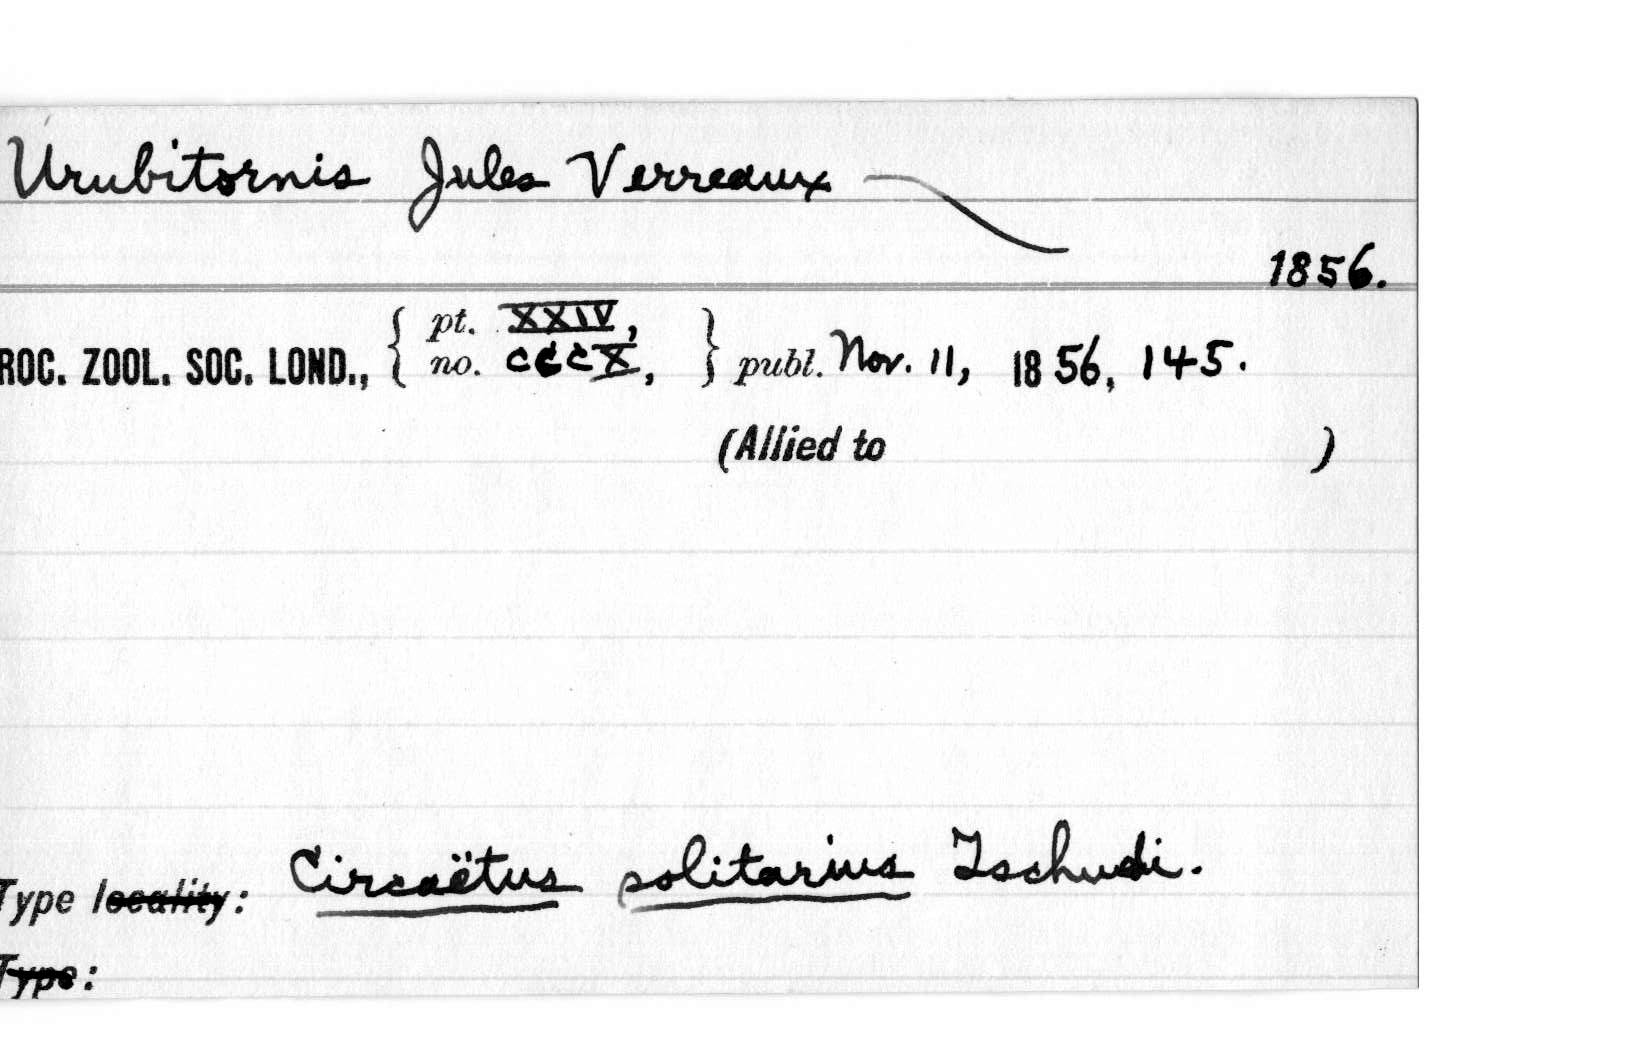 Urubitornis Jules Verreaux
1856.
ROC. ZOOL. SOC. LOND., { pt. XXIV, no. CCCX, } publ. Nov. 11, 1856, 145.
(Allied to )
Type locality: Circaëtus solitarius Tschudi.
Type: